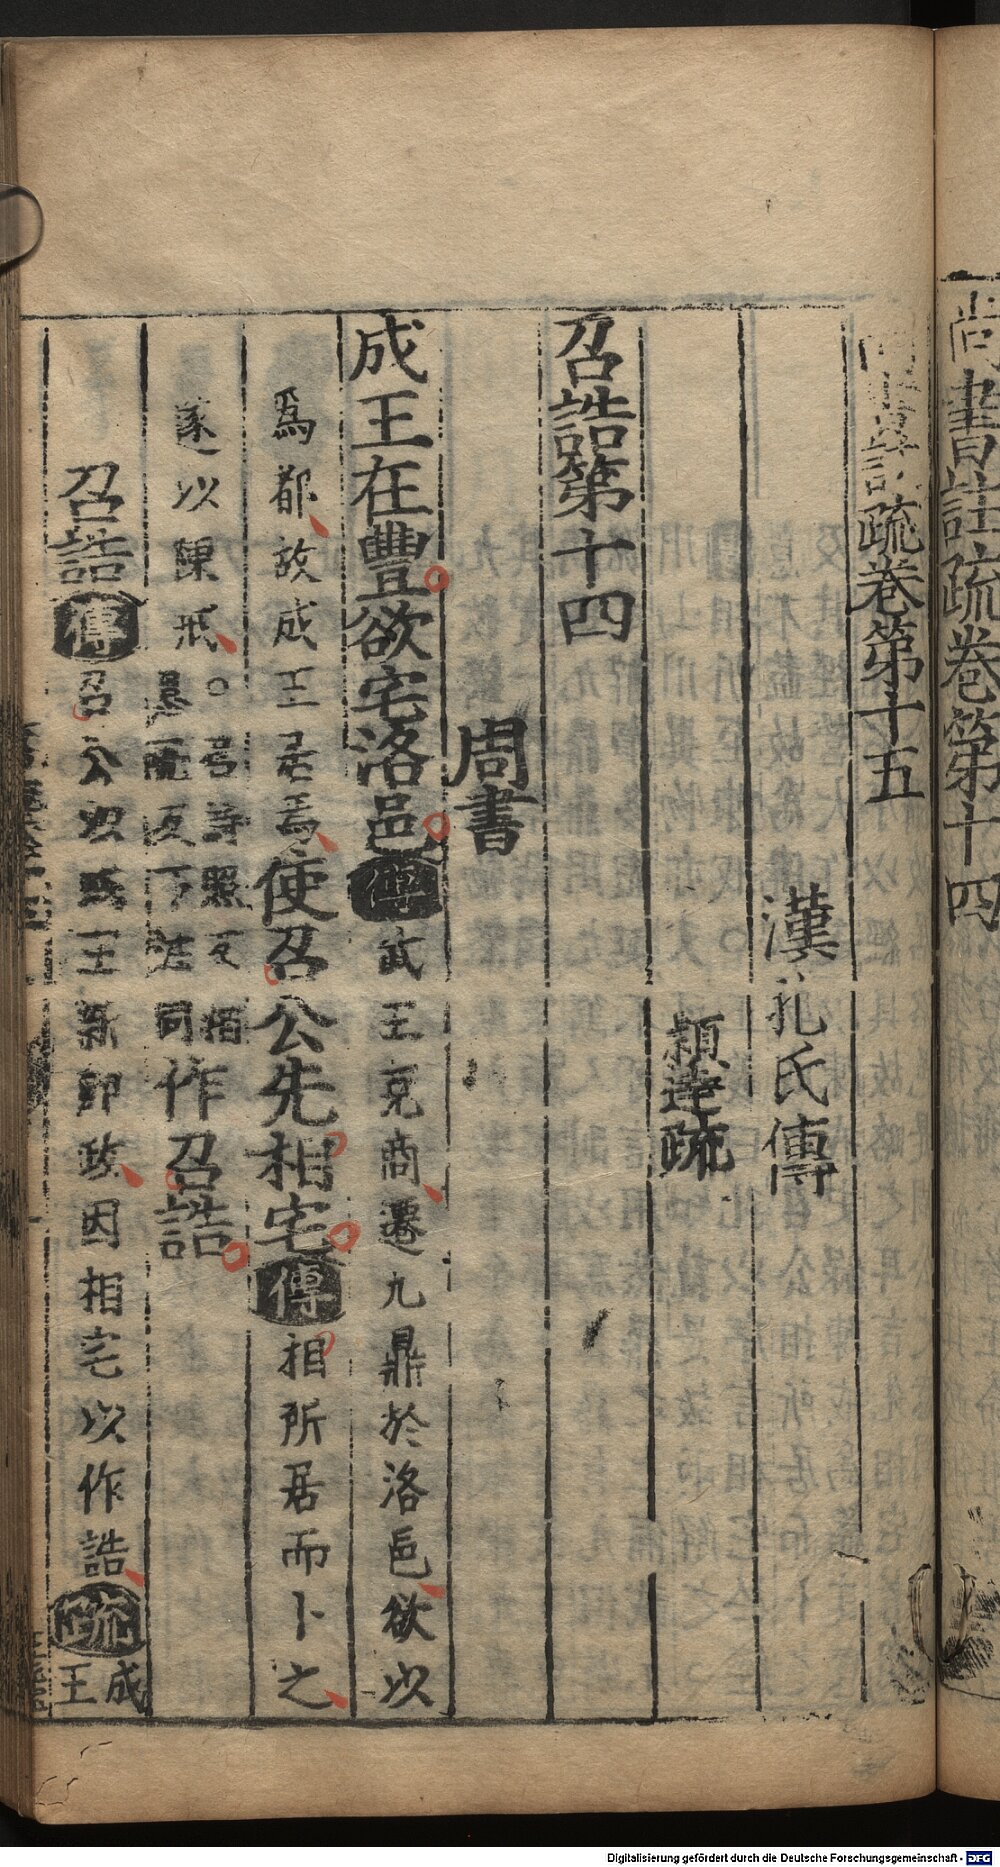 尚書註疏卷第十四
尚書註疏卷第十五
漢 孔氏傳
穎達疏
召誥第十四
周書
成王在豐欲宅洛邑傳武王克商遷九鼎於洛邑欲以
爲都故成王居焉使召公先相宅傳相所居而卜之
遂以陳戒。召時照反相息亮反下注同作召誥
召誥傳召公以成王新即政因相宅以作誥疏成王
Digitalisierung gefördert durch die Deutsche Forschungsgemeinschaft - DFG